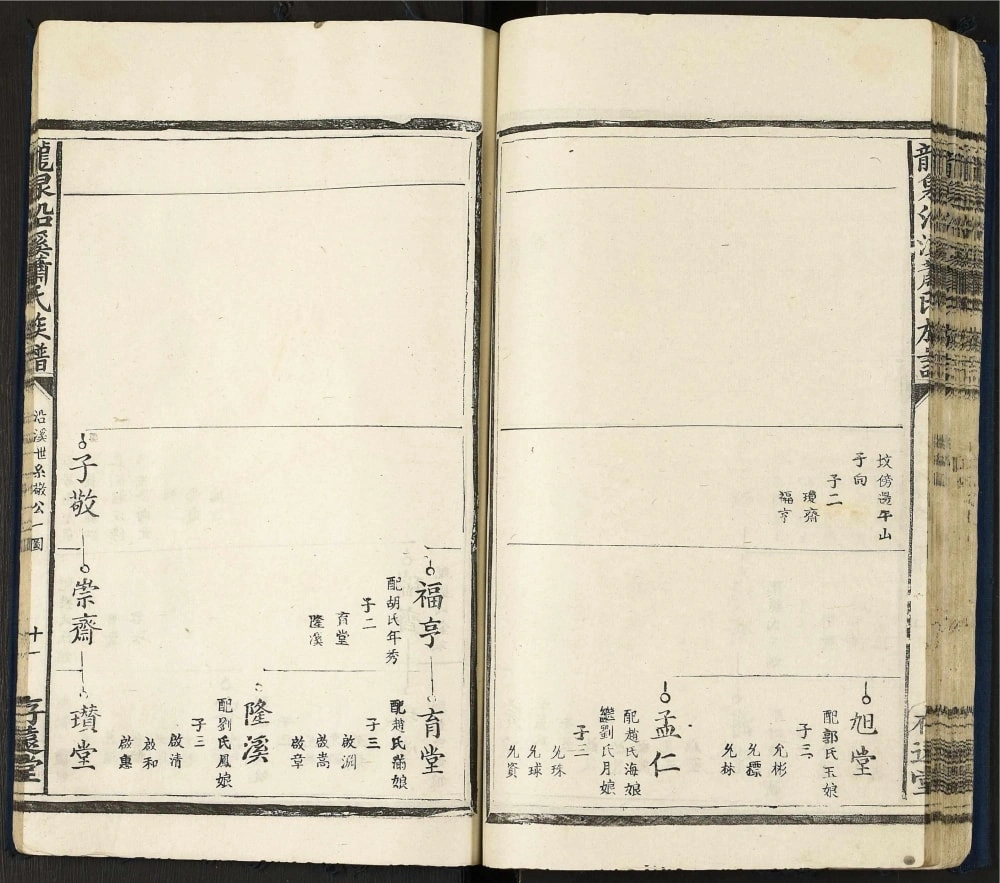 坟傍邊午山
子向
子二
瓊齋
福亨
旭堂
配郭氏玉娘
子三
允彬
允標
允林
孟仁
配趙氏海娘
繼劉氏月娘
子三
允珠
允球
允賓
福亨
配胡氏年秀
子二
育堂
隆溪
育堂
配趙氏滿娘
子三
啟淵
啟嵩
啟章
隆溪
配劉氏鳳娘
子三
啟清
啟和
啟惠
子敬
崇齋
瓚堂
龍泉沿溪蕭氏族譜
沿溪世系敬公一圖
十一
存遠堂